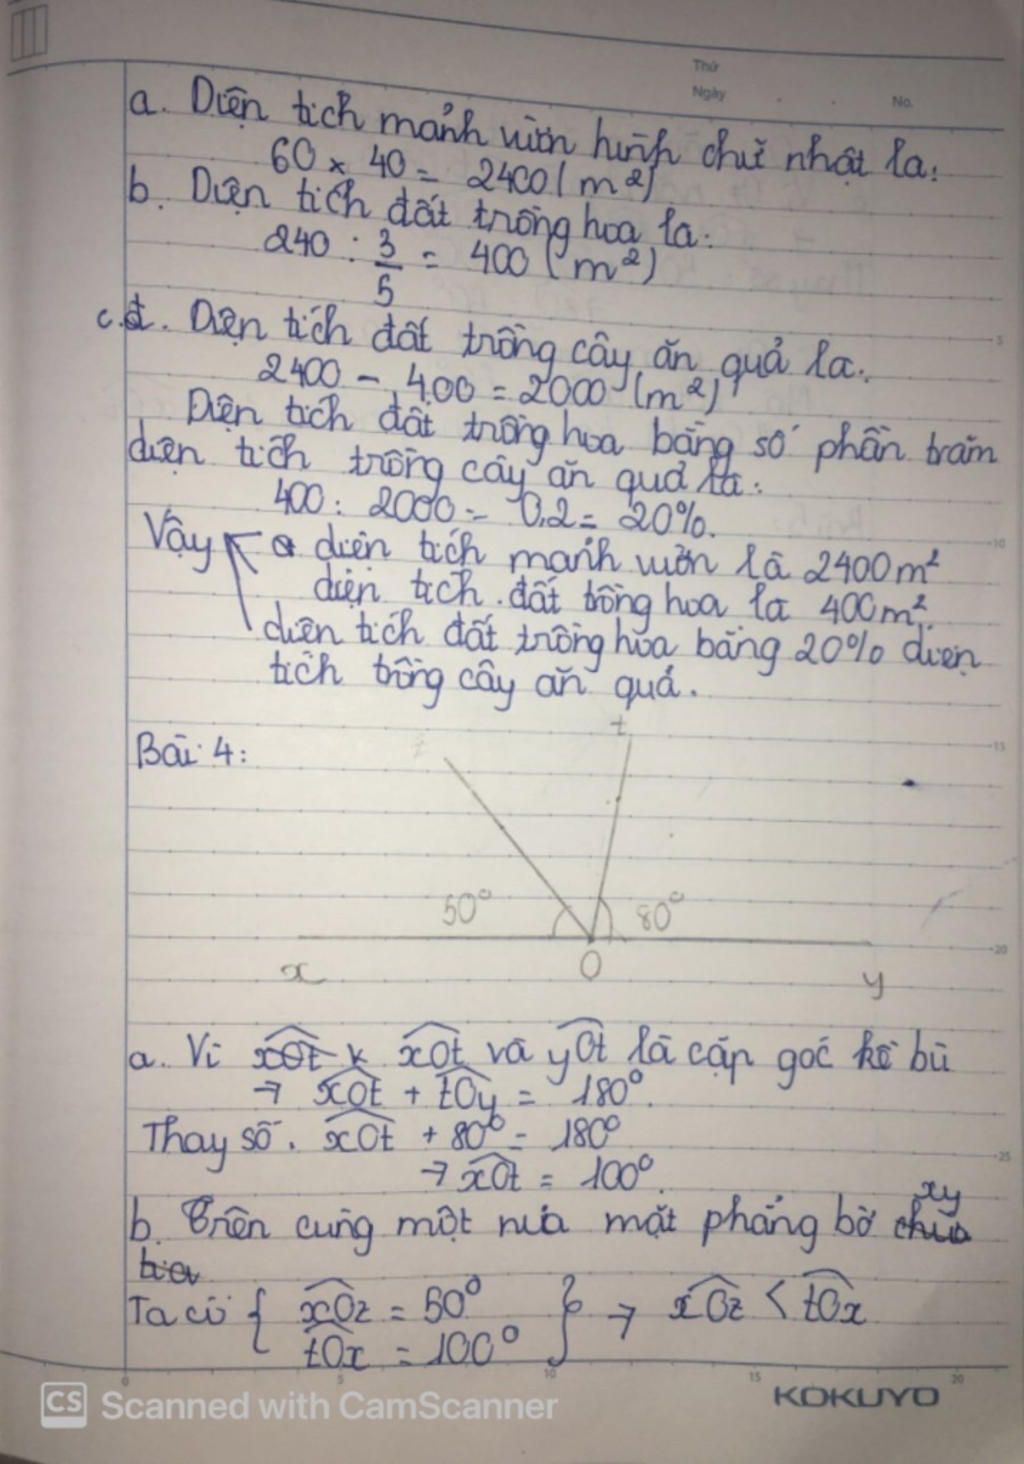 Thứ
Ngày . . No.
a. Diện tích mảnh vườn hình chữ nhật là:
60 × 40 = 2400 ( m²)
b. Diện tích đất trồng hoa là:
240 : 3/5 = 400 ( m²)
c. Diện tích đất trồng cây ăn quả là:
2400 - 400 = 2000 (m²)
Diện tích đất trồng hoa bằng số phần trăm
diện tích trồng cây ăn quả là:
400 : 2000 = 0,2 = 20%.
Vậy diện tích mảnh vườn là 2400m²
diện tích đất trồng hoa là 400m².
diện tích đất trồng hoa bằng 20% diện
tích trồng cây ăn quả.
Bài 4:
z t
50° 80°
x O y
a. Vì xOt xOt và yOt là cặp góc kề bù
→ xOt + tOy = 180°.
Thay số. xOt + 80° = 180°
→ xOt = 100°.
xy
b. Trên cùng một nửa mặt phẳng bờ chứa
tia
Ta có { xOz = 50° } → xOz < tOx
tOx = 100°
5 10 15 20 25
0 5 10 15 20
CS Scanned with CamScanner
KOKUYO